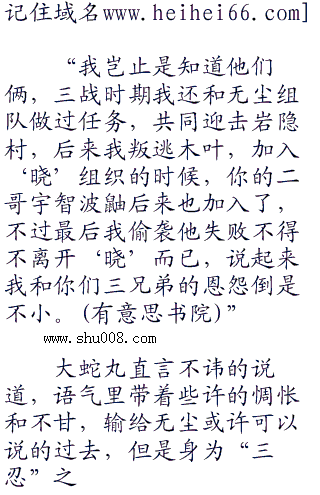 记住域名www.heihei66.com]
“我岂止是知道他们
俩，三战时期我还和无尘组
队做过任务，共同迎击岩隐
村，后来我叛逃木叶，加入
‘晓’组织的时候，你的二
哥宇智波鼬后来也加入了，
不过最后我偷袭他失败不得
不离开‘晓’而已，说起来
我和你们三兄弟的恩怨倒是
不小。(有意思书院)”
www.shu008.com
大蛇丸直言不讳的说
道，语气里带着些许的惆怅
和不甘，输给无尘或许可以
说的过去，但是身为“三
忍”之